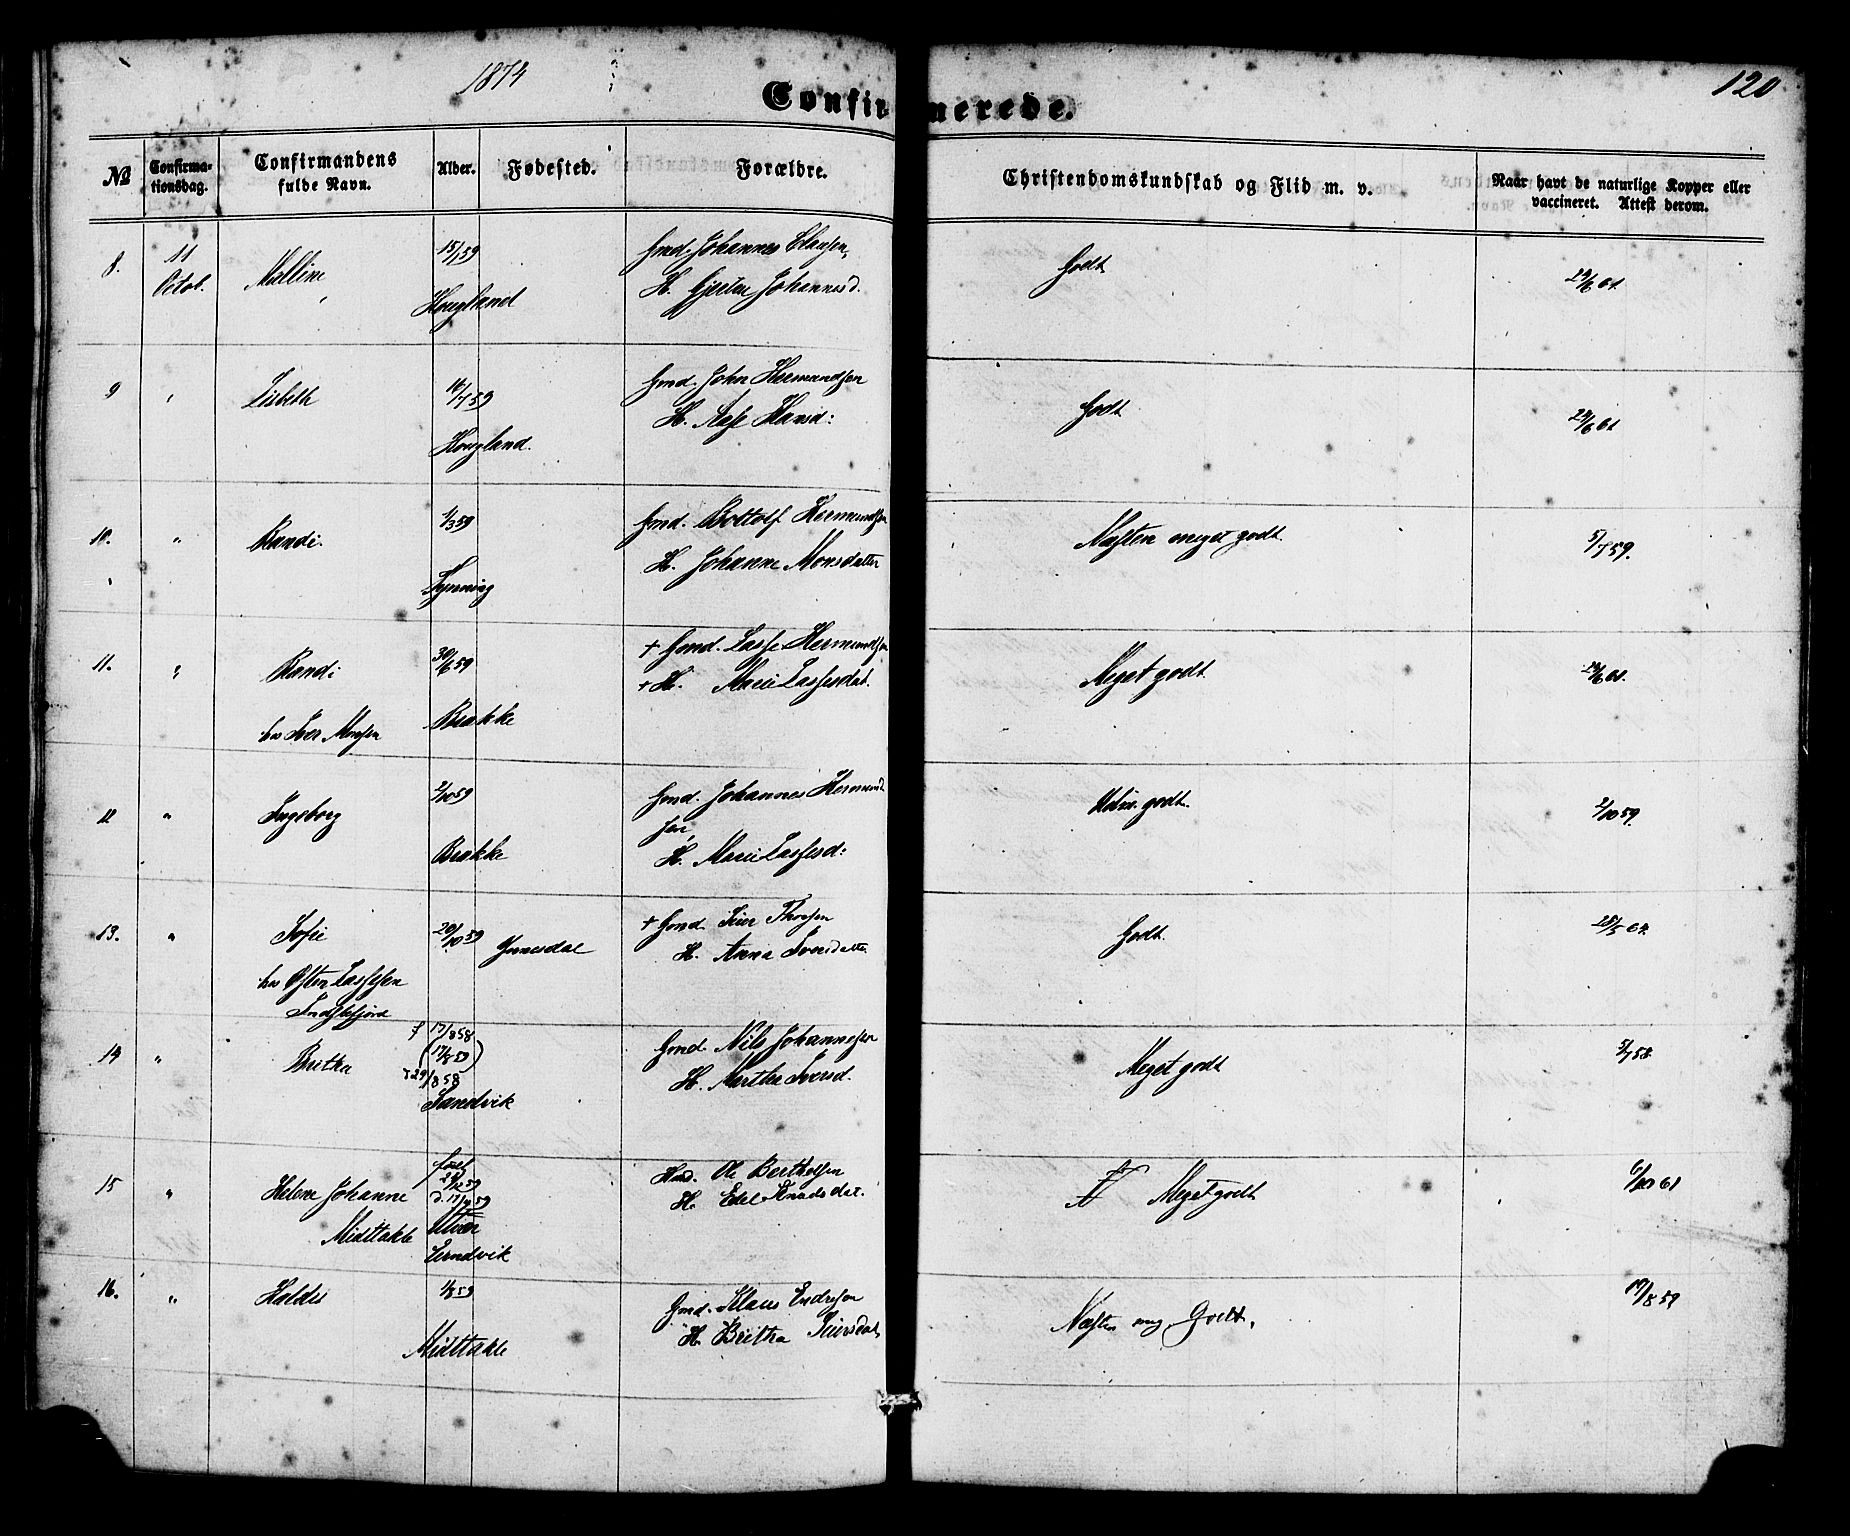 1874
120
Confirmerede.
№
Confirma-
tionsdag.
Confirmandens
fulde Navn.
Alder.
Fødested.
Forældre.
Christendomskundskab og Flid m. v.
Naar havt de naturlige Kopper eller
vaccineret. Attest derom.
8.
11
Octob.
Malline
15/1 59
Hougland
Gmd. Johannes Clausen,
H. Gjertru Johannesd.
Godt
24/6 61
9
Lisbeth
16/4 59
Hougland.
Gmd. John Hermundsen
H. Aase Hansd:
Godt
24/6 61
10.
"
Randi.
1/3 59
Gmd. Bottolf Hermundsen
H. Johanne Monsdatter
Næsten meget godt.
5/7 59.
11.
"
Randi
30/6 59
hos Iver Monsen
Brække
+ Gmd. Lasse Hermundsen
+ H. Marie Lassesdat.
Meget godt
24/6 61.
12
"
Ingeborg
2/10 59
Brække
Gmd. Johannes Hermund
sen,
H. Marie Lassesd:
Udm. godt.
2/10 59.
13.
"
Sofie
20/10 59
Ynnesdal
hos Østen Lassesen
Indrefjord
+ Gmd. Peier Thorsen
H. Anna Iversdatter
Godt.
28/5 64.
14
"
Britha
f 17/8 58
(17/8 59)
d 29/8 58
Sandvik
Gmd. Nils Johannesen
H. Martha Iversd.
Meget godt
5/7 58.
15
"
Helene Johanne
Midttakle
født
d. 17/4 59
Utvær
Eivindvik
Hmd. Ole Berthelsen
H. Edel Knudsdat.
Meget godt
6/10 61
16.
"
Haldis
1/8 59
Midttakle
Gmd. Klaus Endresen
H. Britha Peiersdat,
Næsten meg Godt.
17/8 59